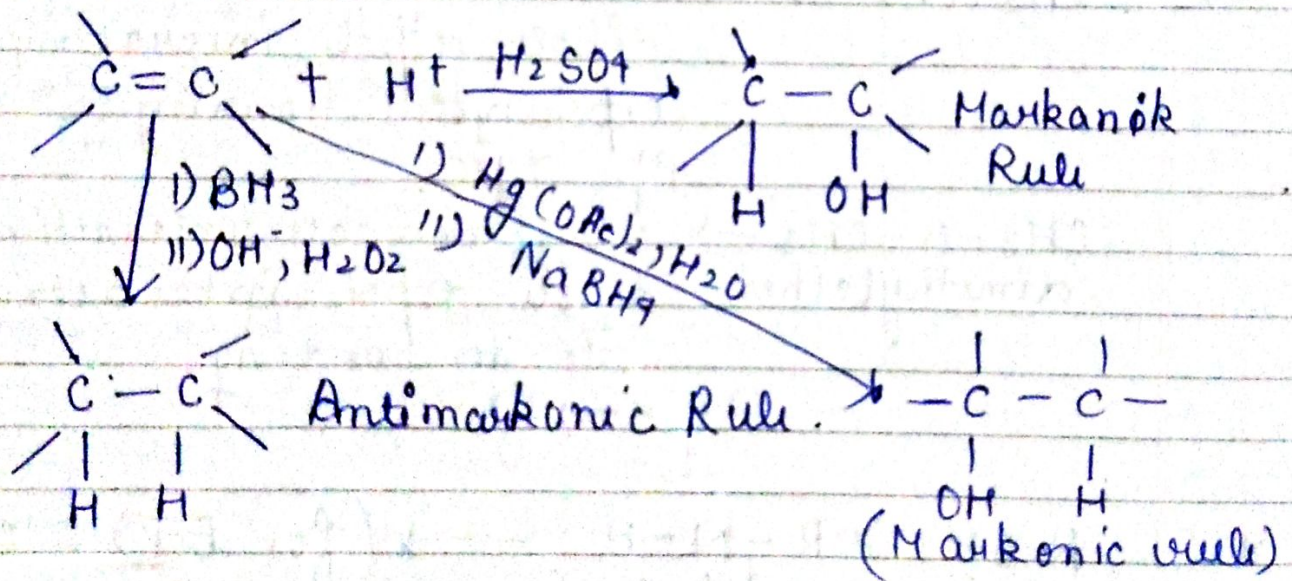 C = C + H⁺ H2SO4 C — C Markanik
H OH Rule
I) BH3
II) OH⁻, H2O2
I) Hg(OAc)2, H2O
II) NaBH4
C — C Antimarkonic Rule.
H H
— C — C —
OH H
(Markonic rule)